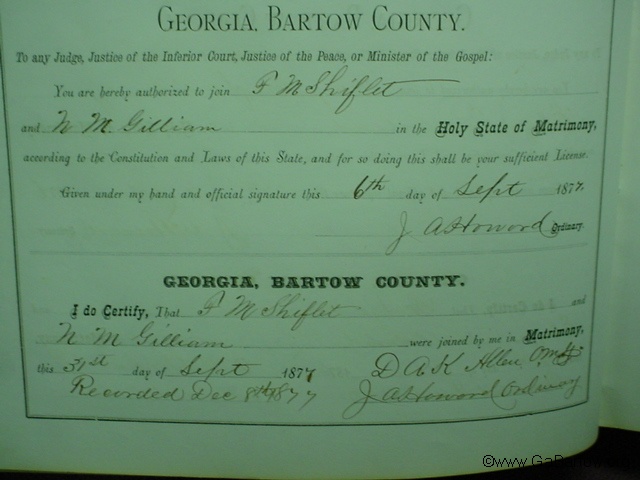 GEORGIA, BARTOW COUNTY.
To any Judge, Justice of the Inferior Court, Justice of the Peace, or Minister of the Gospel:
You are hereby authorized to join F M Shiflet
and N M Gilliam in the Holy State of Matrimony,
according to the Constitution and Laws of this State, and for so doing this shall be your sufficient License.
Given under my hand and official signature this 6th day of Sept 1877.
J A Howard Ordinary.
GEORGIA, BARTOW COUNTY.
I do Certify, That F M Shiflet and
N M Gilliam were joined by me in Matrimony,
this 31st day of Sept 1877 D A K Allen
Recorded Dec 8th 1877 J A Howard Ordinary
©www.GaP